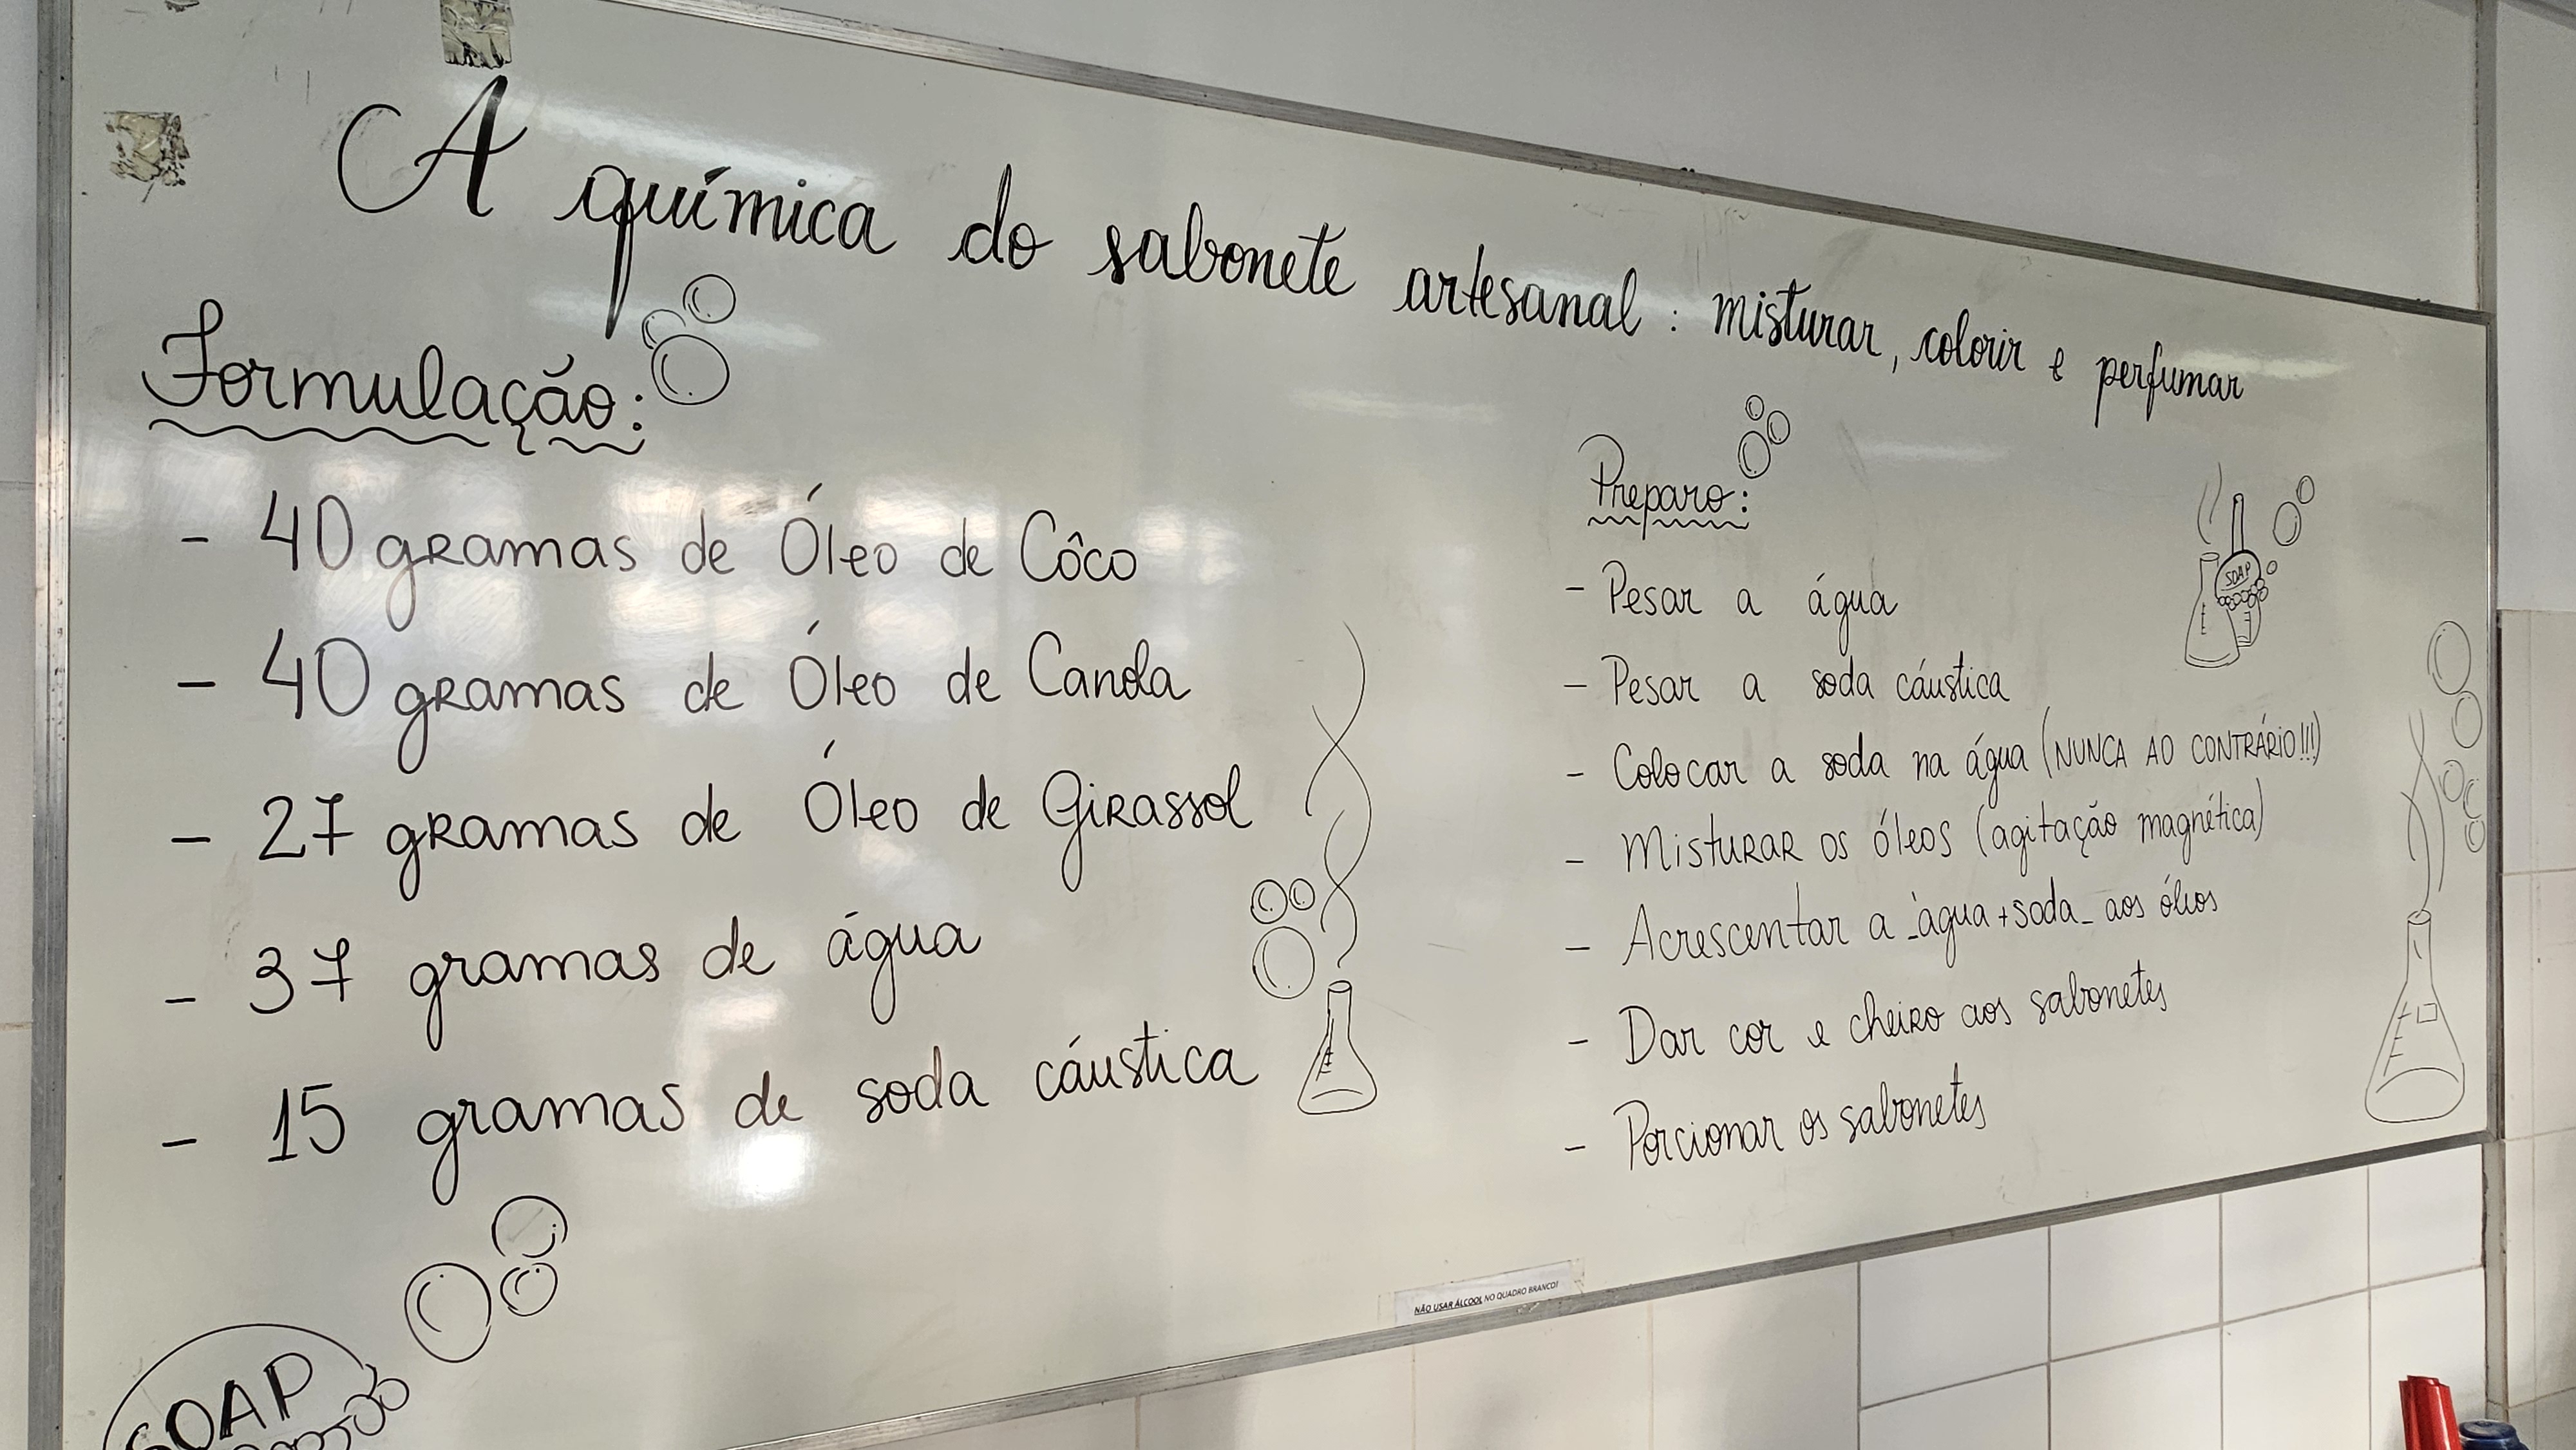 A química do sabonete artesanal: misturar, colorir e perfumar
Formulação:
- 40 gramas de Óleo de Côco
- 40 gramas de Óleo de Canola
- 27 gramas de Óleo de Girassol
- 37 gramas de água
- 15 gramas de soda cáustica
SOAP
Preparo:
- Pesar a água
- Pesar a soda cáustica
- Colocar a soda na água (NUNCA AO CONTRÁRIO!!!)
- Misturar os óleos (agitação magnética)
- Acrescentar a _água+soda_ aos óleos
- Dar cor e cheiro aos sabonetes
- Porcionar os sabonetes
SOAP
NÃO USAR ÁLCOOL NO QUADRO BRANCO!